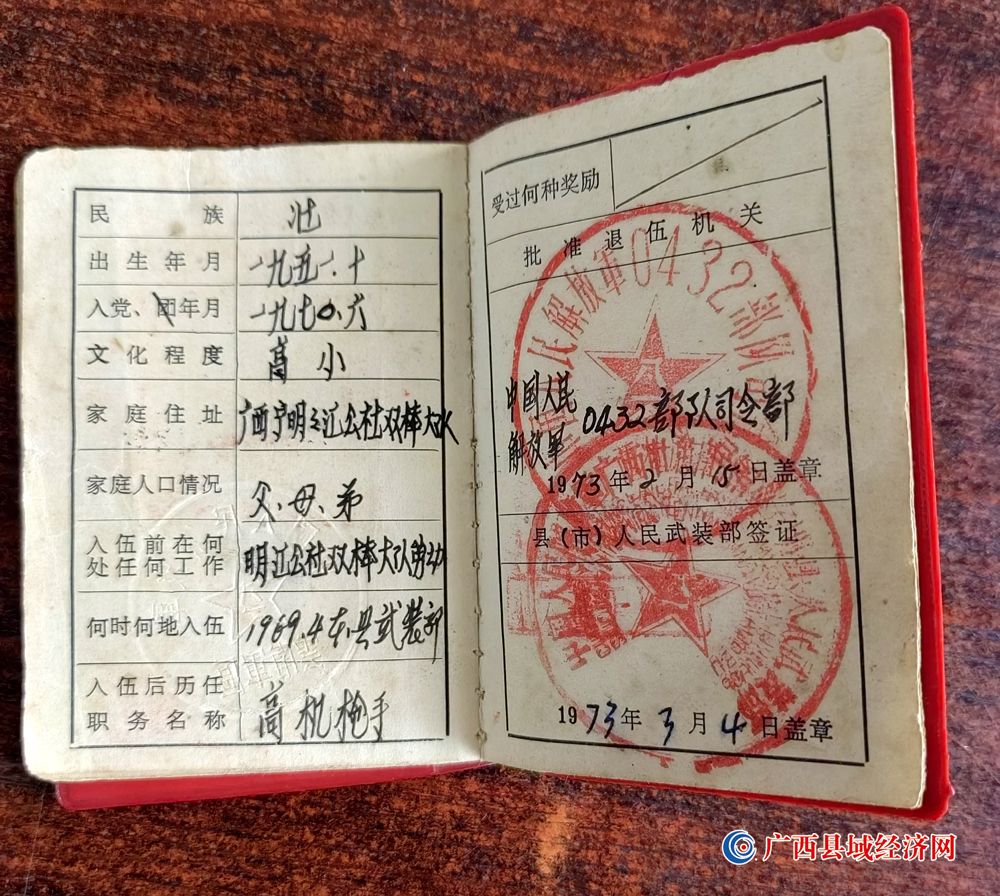 民族 壮
出生年月 一九五一.十
入党、团年月 一九七〇.六
文化程度 高小
家庭住址 广西宁明明江公社双棒大队
家庭人口情况 父、母、弟
入伍前在何
处任何工作 明江公社双棒大队劳动
何时何地入伍 1969.4在县武装部
入伍后历任
职务名称 高机枪手
受过何种奖励
批准退伍机关
民解放军0432部队
中国人民
解放军 0432部队司令部
1973年2月15日盖章
县(市)人民武装部签证
1973年3月4日盖章
广西县域经济网